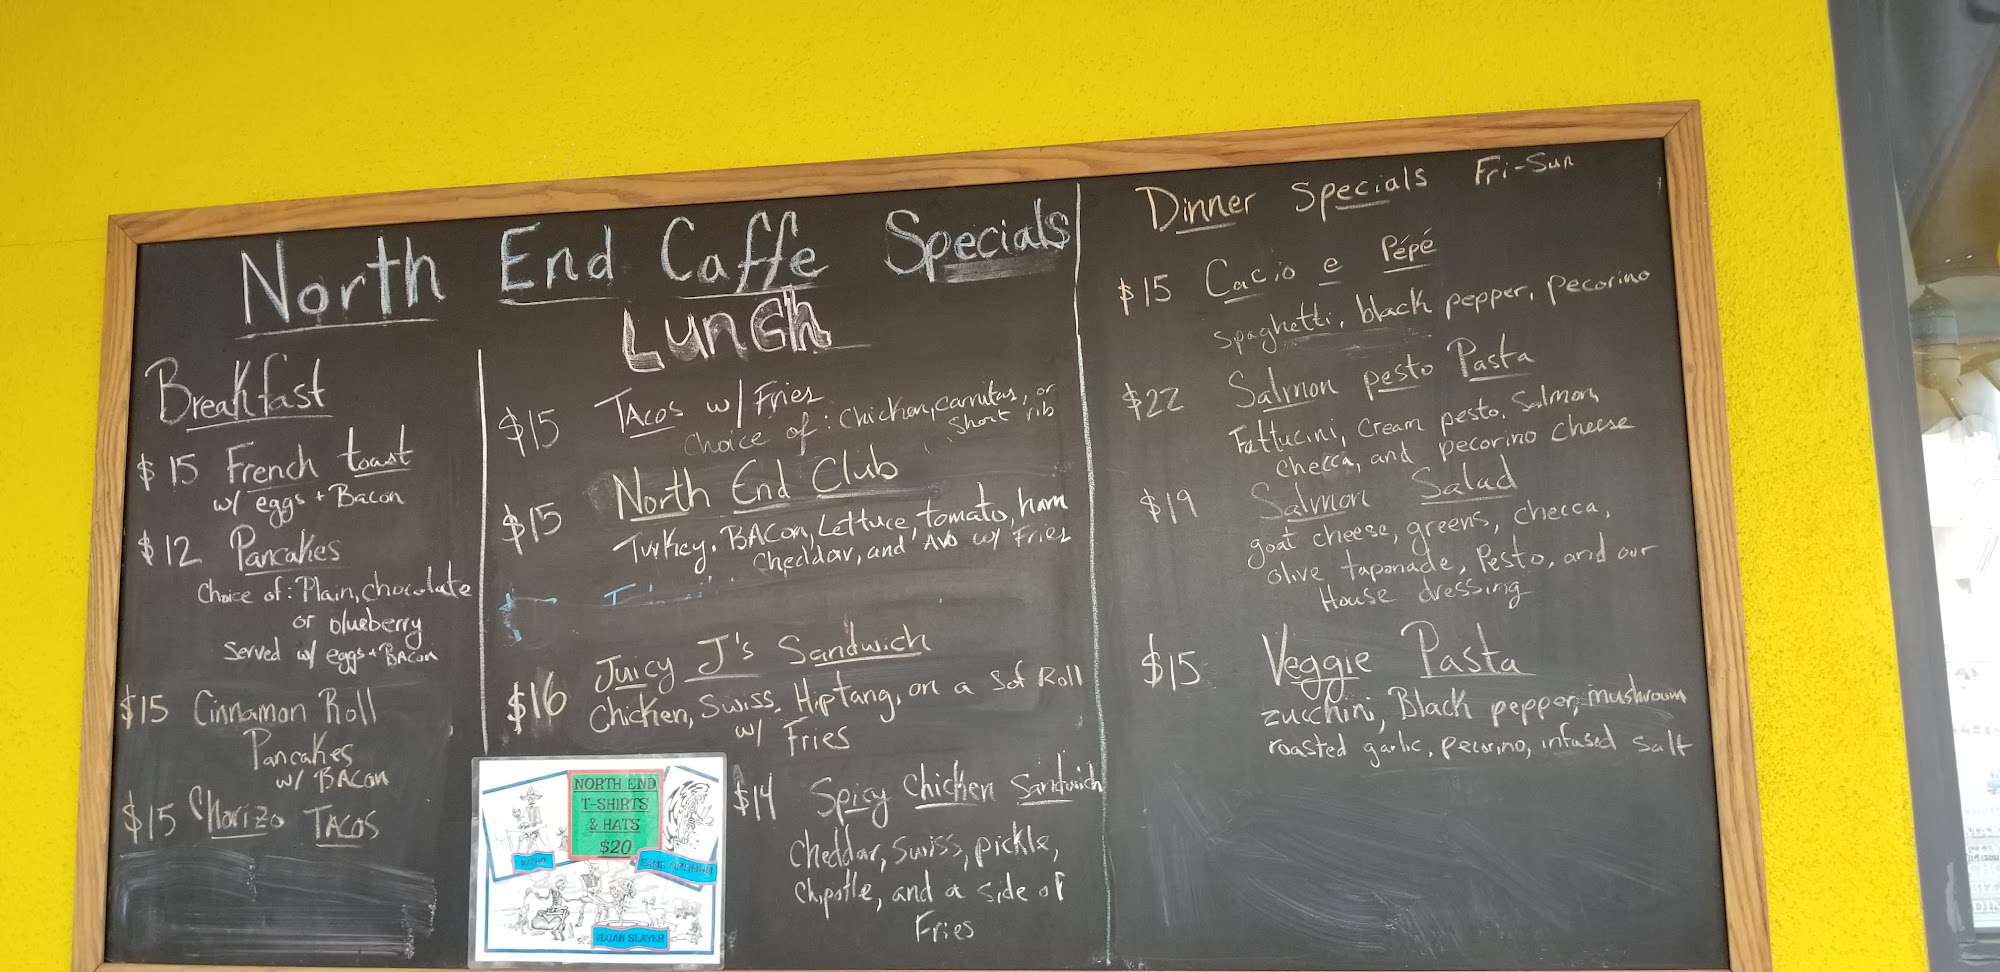 North End Caffe Specials
Breakfast
$15 French toast
w/ eggs + Bacon
$12 Pancakes
Choice of: Plain, chocolate
or blueberry
Served w/ eggs + BACon
$15 Cinnamon Roll
Pancakes
w/ BACon
$15 Chorizo TACOS
LUNCh
$15 TACOS w/ Fries
choice of: Chicken, carnitas, or
short rib
$15 North End Club
Turkey, BACon, Lettuce, tomato, ham
Cheddar, and Avo w/ Fries
$16 Juicy J's Sandwich
Chicken, Swiss, Hiptang, on a Sof Roll
w/ Fries
$14 Spicy Chicken Sandwich
Cheddar, Swiss, pickle,
Chipotle, and a side of
Fries
NORTH END
T-SHIRTS
& HATS
$20
VEGAN SLAYER
Dinner Specials Fri-Sun
$15 Cacio e Pépé
spaghetti, black pepper, pecorino
$22 Salmon pesto Pasta
Fettucini, cream pesto, Salmon,
checca, and pecorino cheese
$19 Salmon Salad
goat cheese, greens, checca,
olive taponade, Pesto, and our
House dressing
$15 Veggie Pasta
zucchini, Black pepper, mushroom
roasted garlic, pecorino, infused salt